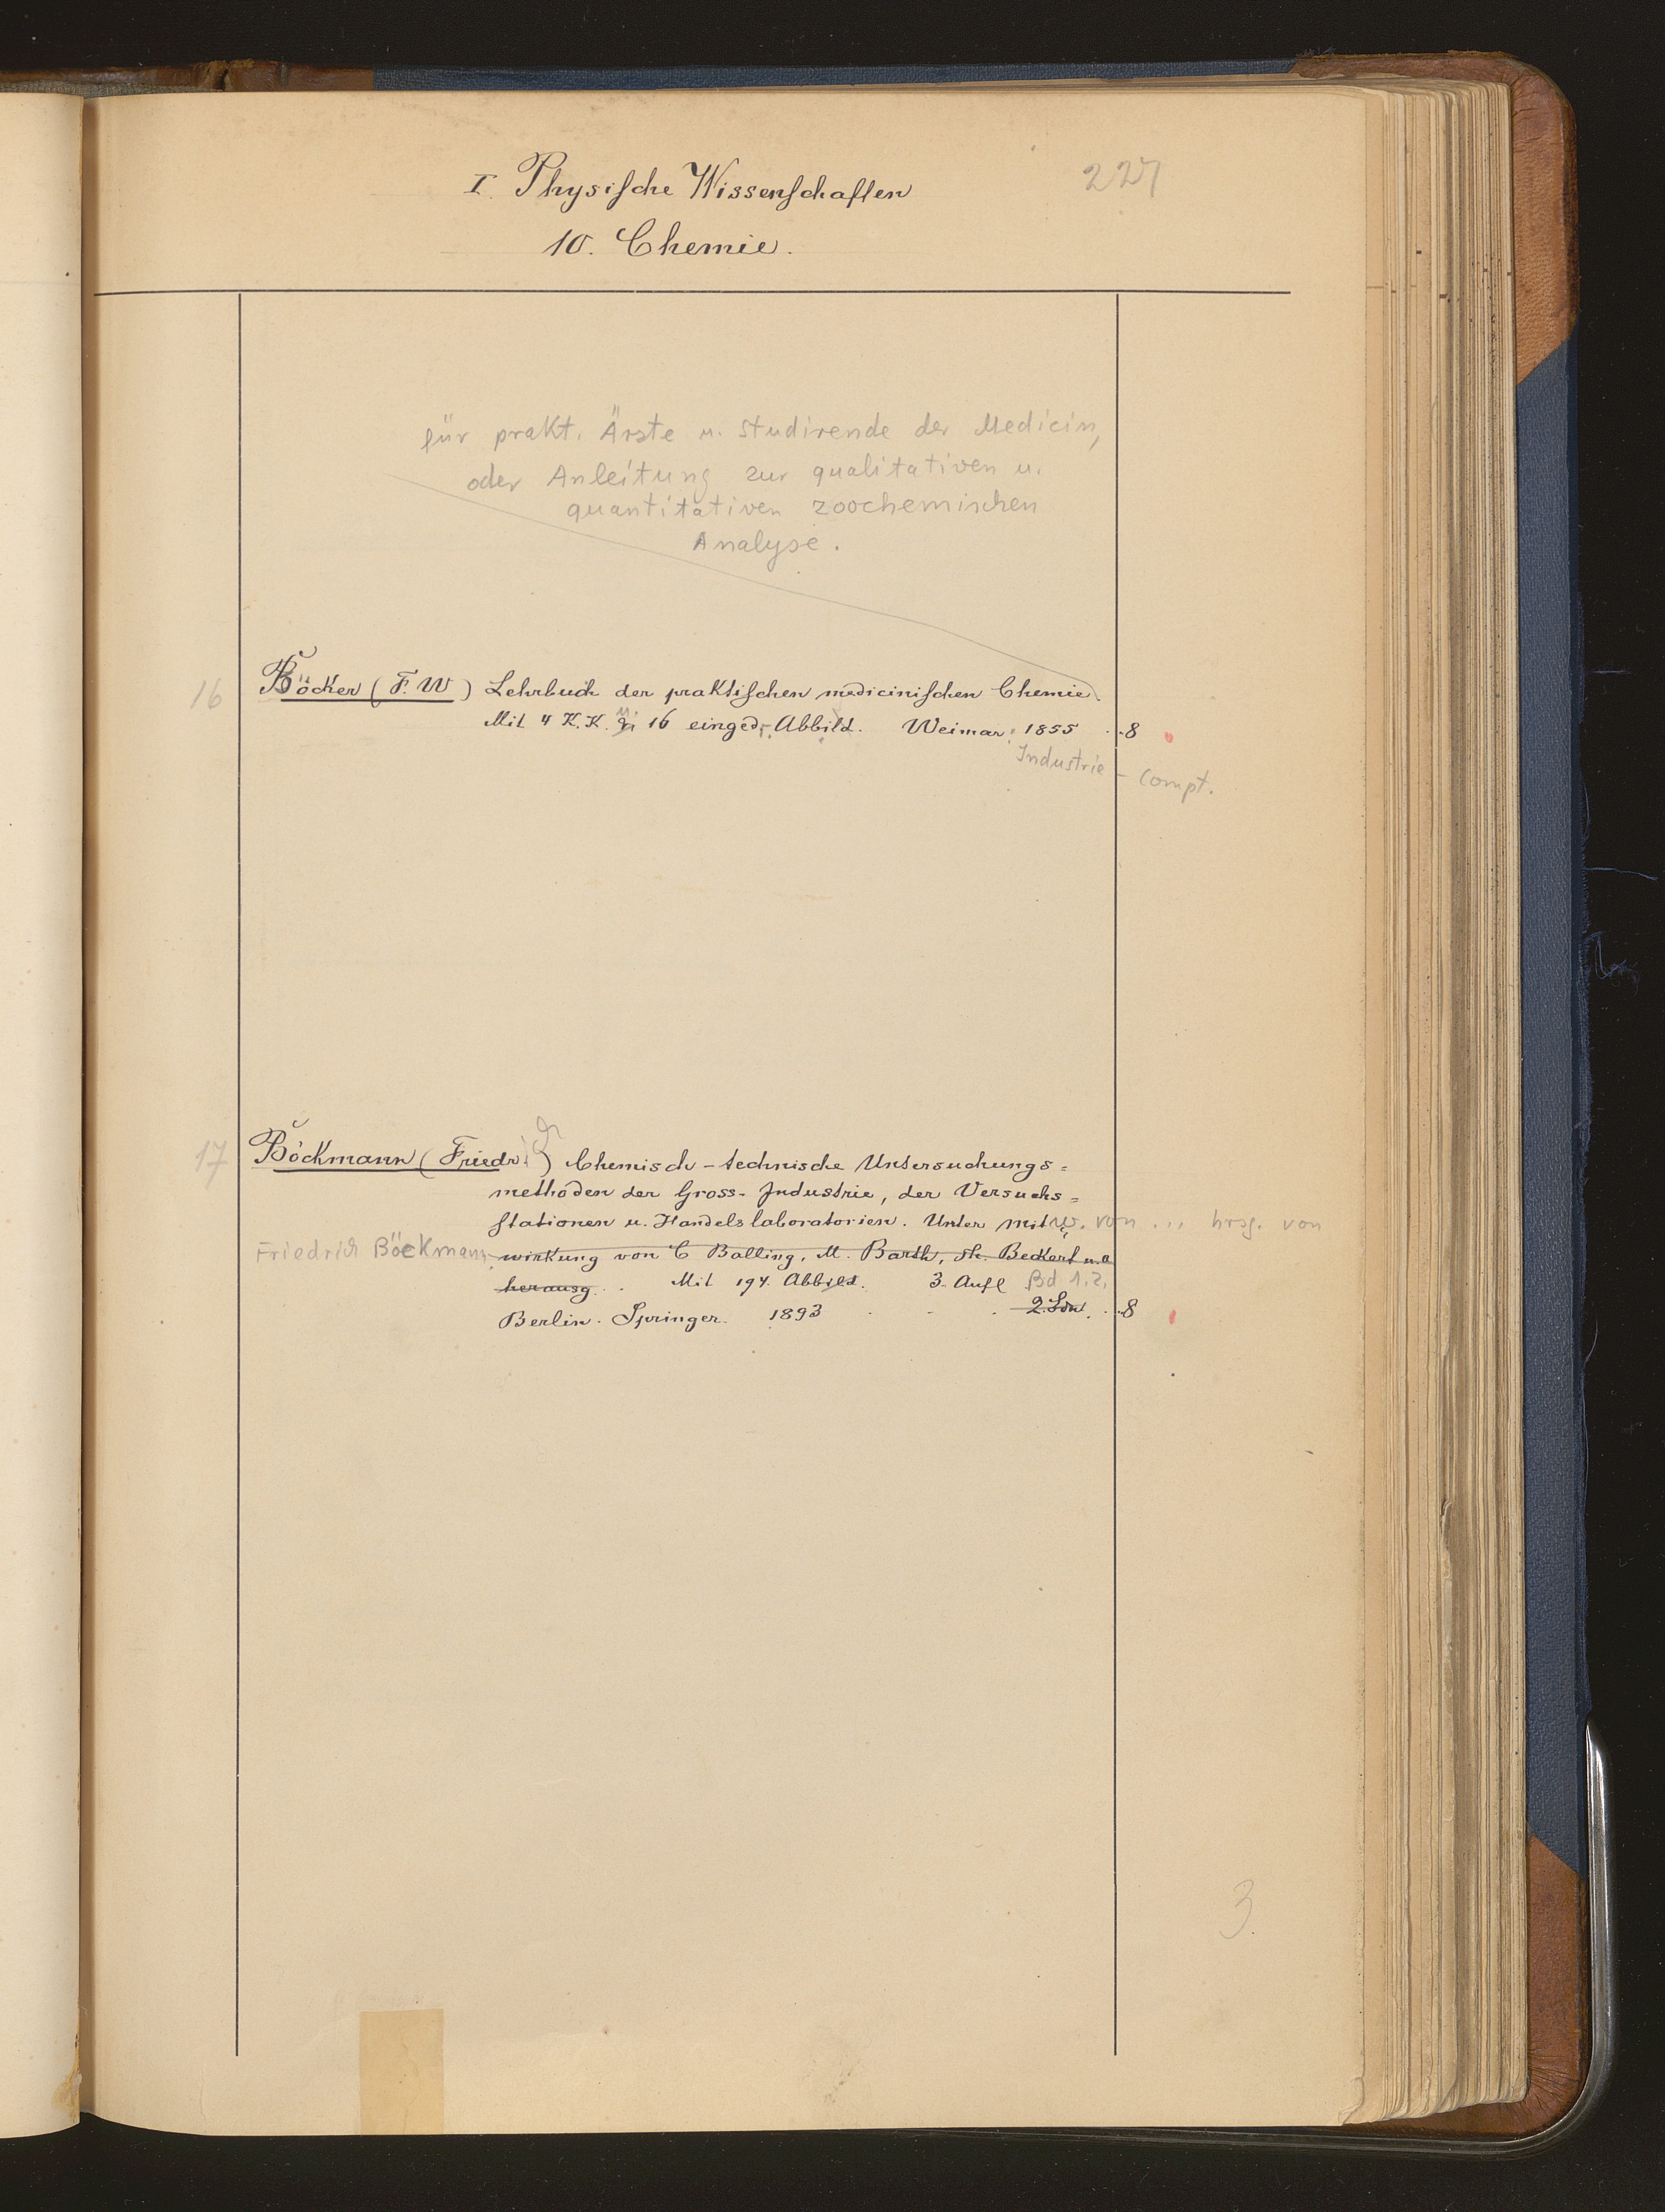 I. Physische Wissenschaften
227
10. Chemie.
für prakt. Ärzte u. Studirende der Medicin,
oder Anleitung zur qualitativen u.
quantitativen zoochemischen
Analyse.
16 Böcker (F. W) Lehrbuch der praktischen medicinischen Chemie.
Mit 4 K. K. u. 16 einged. Abbild. Weimar 1855 8
Industrie-Compt.
17 Böckmann (Friedrich) Chemisch-technische Untersuchungs=
methoden der Gross-Industrie, der Versuchs=
stationen u. Handelslaboratorien. Unter Mitw. von ... hrsg. von
Friedrich Böckmann. wirkung von C Balling, M. Barth, Th. Beckert u.a
herausg. Mit 194 Abbild. 3. Aufl Bd 1.2.
Berlin. Springer. 1893 2. 8
3.